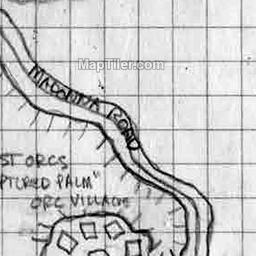 MapTiler.com
ROAD
ST ORCS
PTURED PALM"
ORC VILLAGE